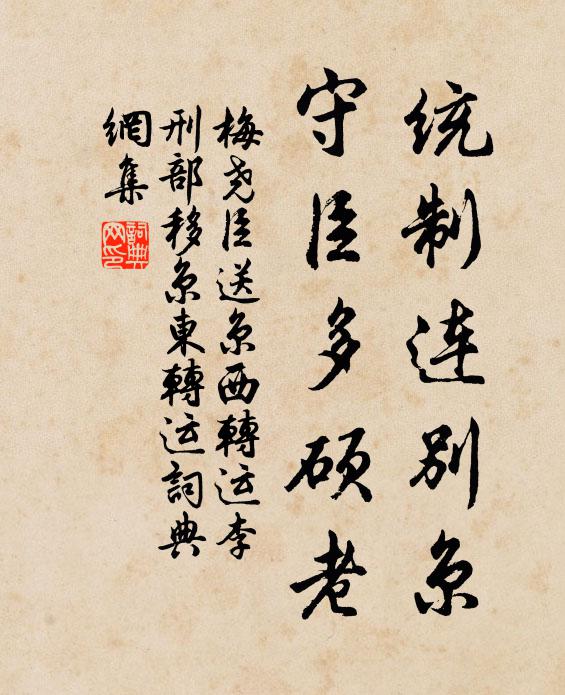 統制連別京
守臣多碩老
梅堯臣送京西轉运李
刑部移京東轉运詞典
網集
詞典
网印